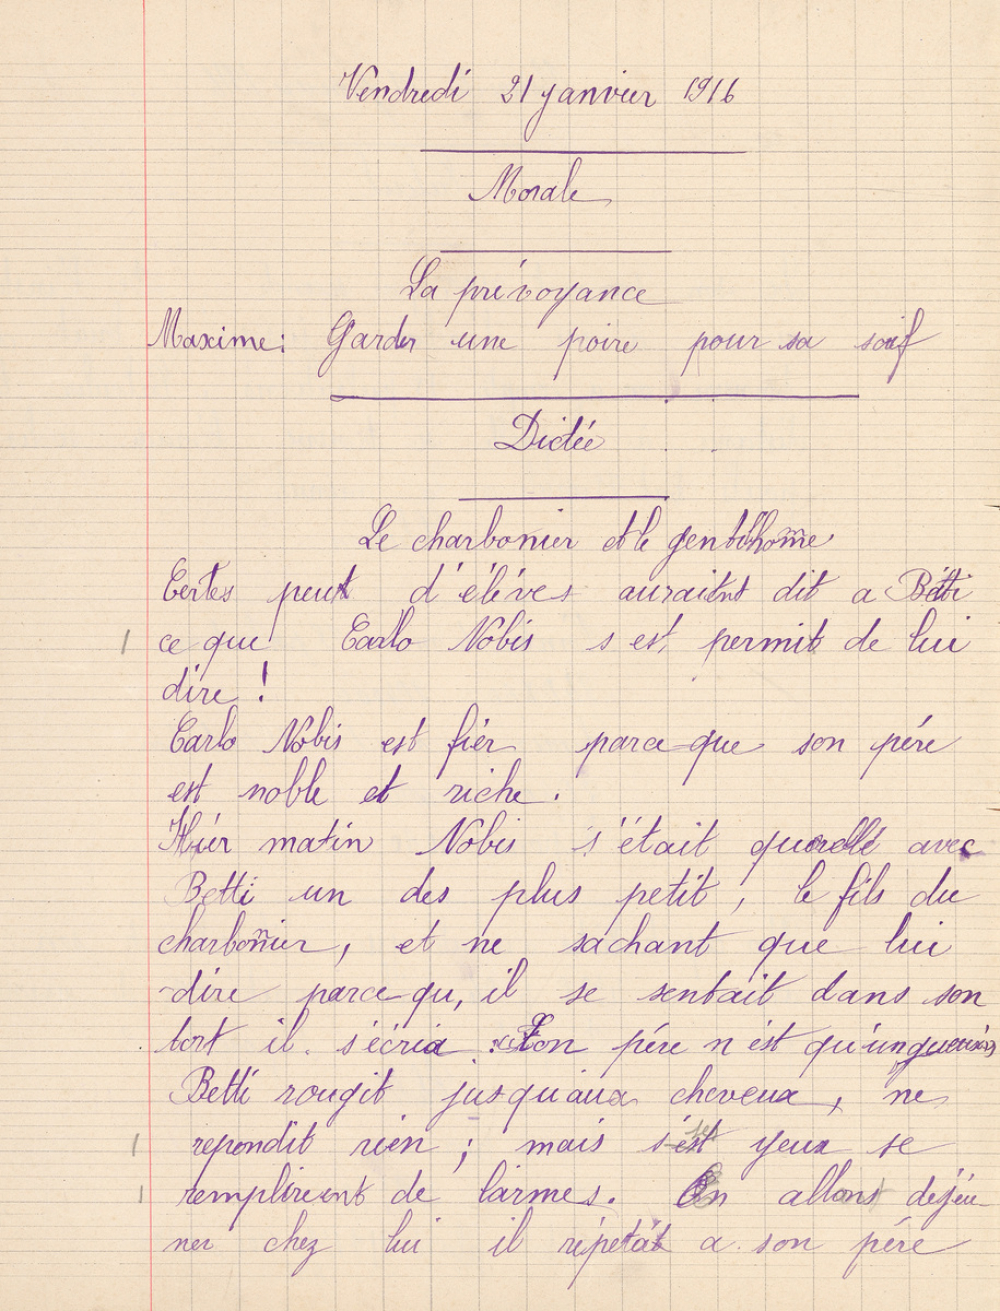 Vendredi 21 janvier 1916
Morale
La prévoyance
Maxime: Garder une poire pour sa soif
Dictée
Le charbonier et le gentilhom̃e
Certes peut d'éléves auraitnt dit a Bétti
ce que Carlo Nobis s est permit de lui
dire !
Carlo Nobis est fiér parce-que son pére
est noble et riche.
Hiér matin Nobis s'était querellé avec
Betti un des plus petit, le fils du
charboñier, et ne sachant que lui
dire parce-qu, il se sentait dans son
tort il s'écria : Ton pére n'est qu'un gueux
Betti rougit jusqu'aux cheveux, ne
repondit rien ; mais s'est ses yeux se
remplireent de larmes. En allant dejéu
ner chez lui il répétat a son pére